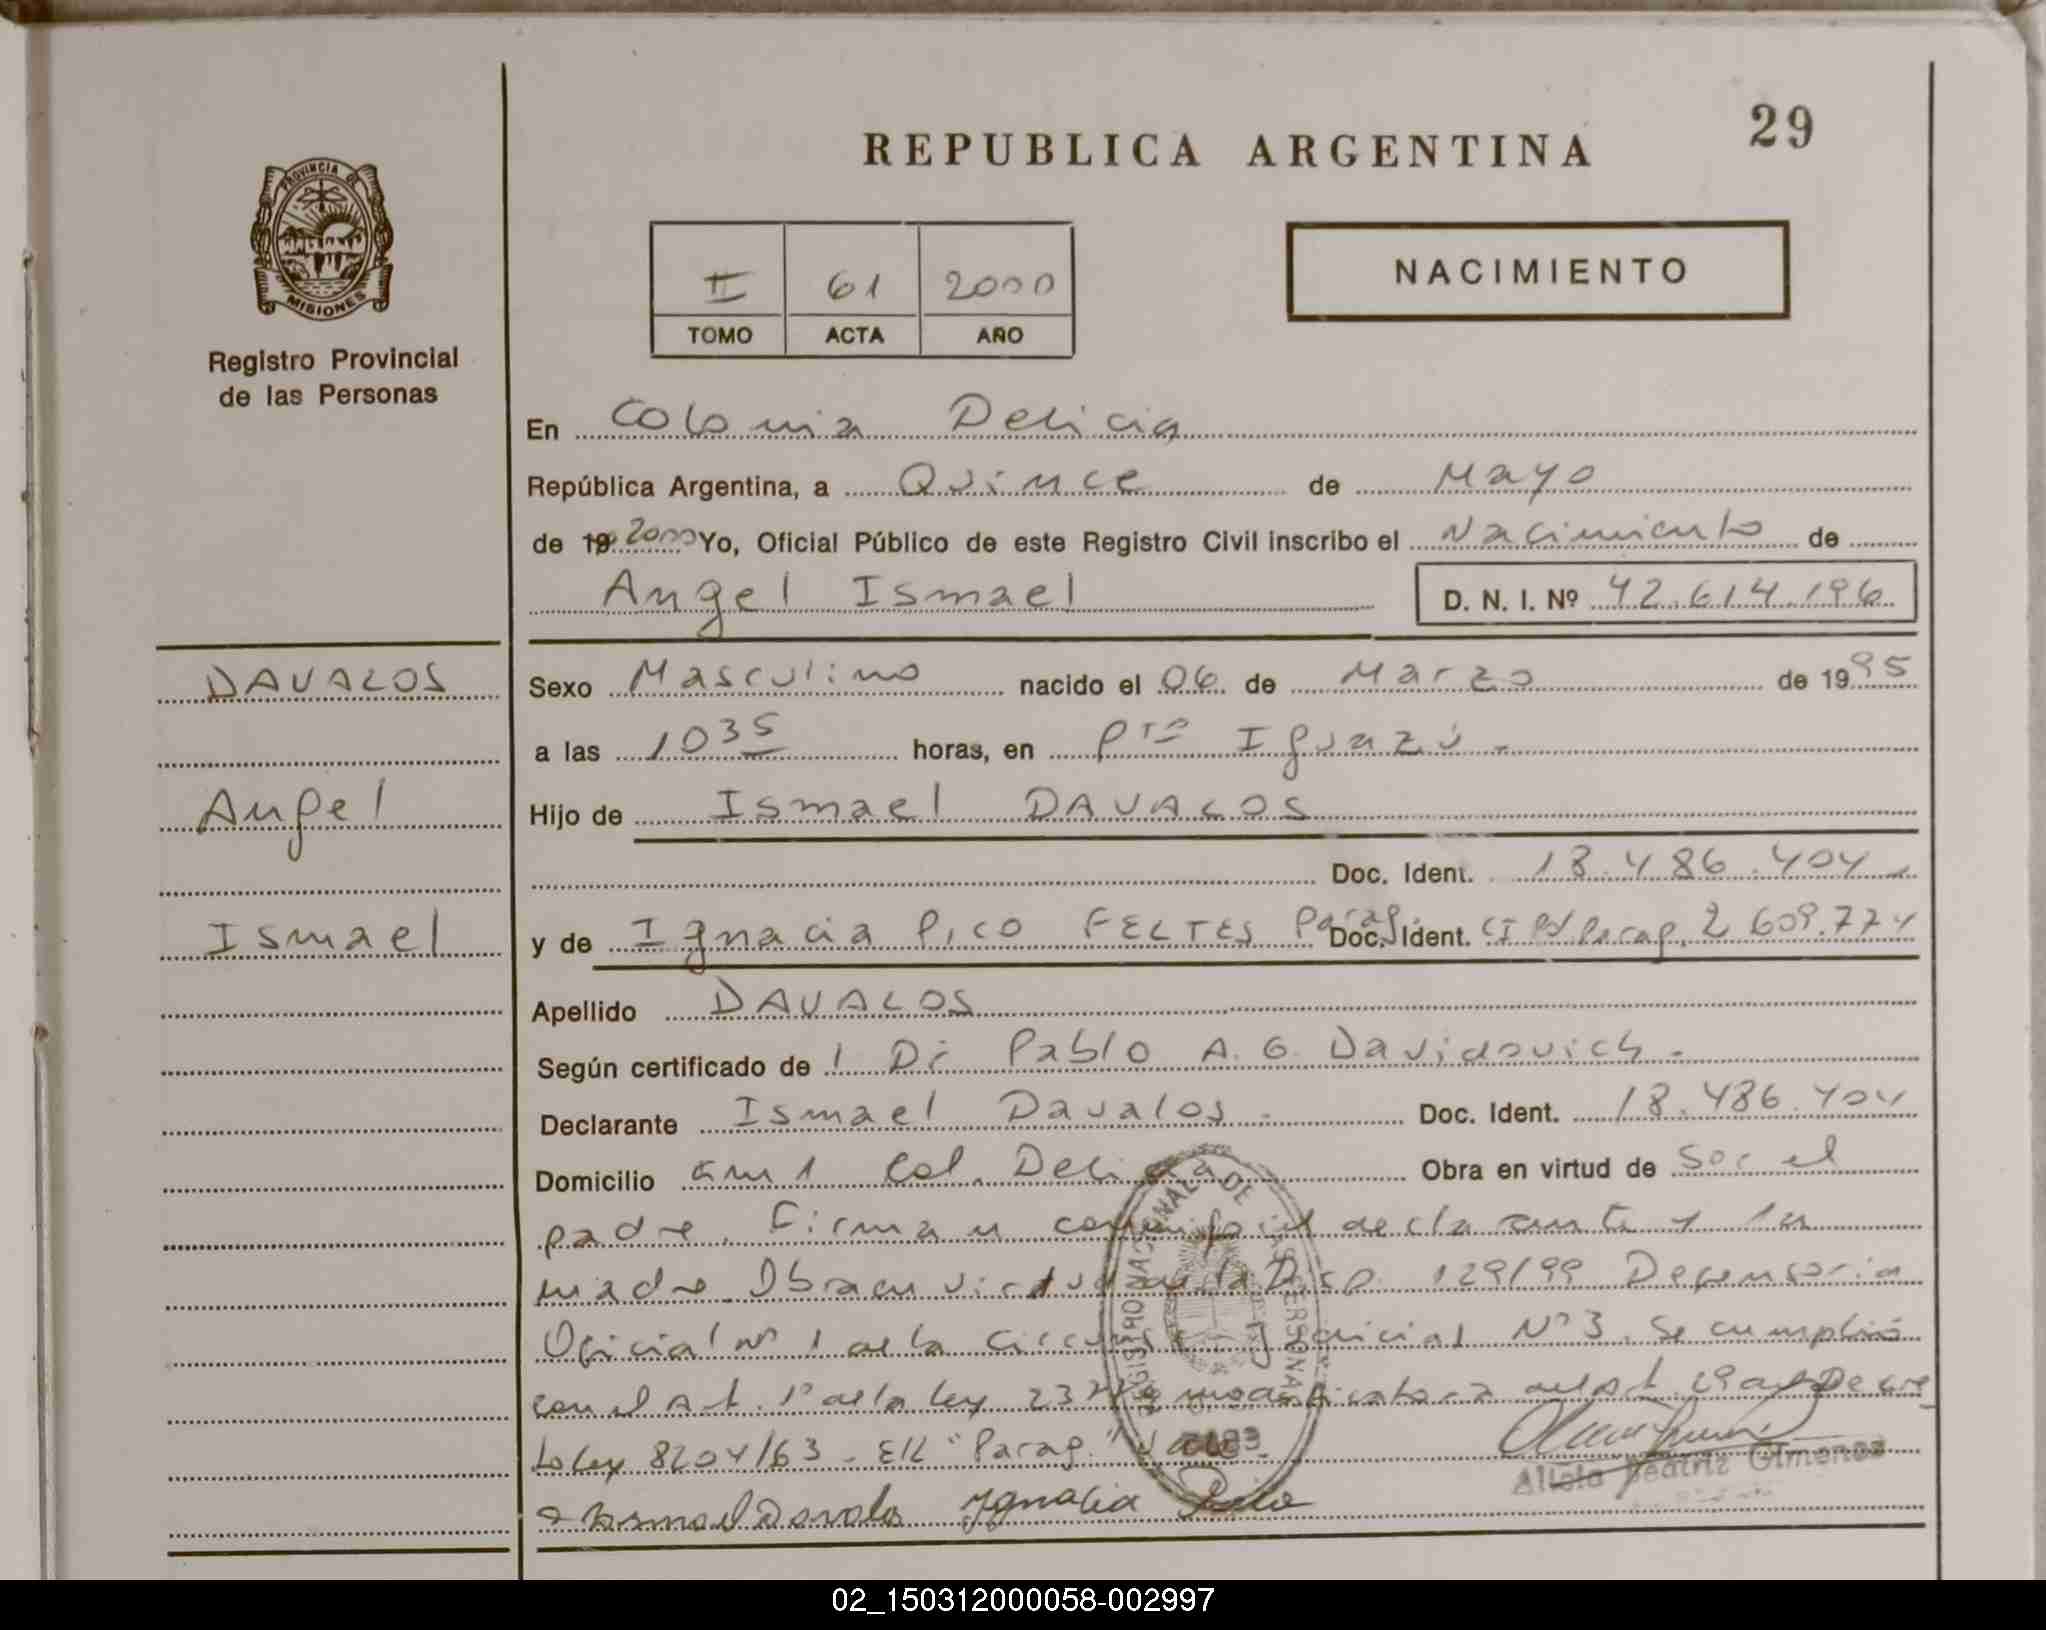 REPUBLICA ARGENTINA
29
PROVINCIA DE
MISIONES
Registro Provincial
de las Personas
II 61 2000
TOMO ACTA AÑO
NACIMIENTO
En Colonia Delicia
República Argentina, a Quince de Mayo
de 19 2000 Yo, Oficial Público de este Registro Civil inscribo el Nacimiento de
Angel Ismael D. N. I. Nº 42.614.196
DAVALOS
Angel
Ismael
Sexo Masculino nacido el 06 de Marzo de 1995
a las 1035 horas, en Pto Iguazú.
Hijo de Ismael DAVALOS
Doc. Ident. 18.486.404
y de Ignacia Pico FELTES Parag. Doc. Ident. CI Parag. 2.609.774
Apellido DAVALOS
Según certificado de l Dr Pablo A. G. Davidovich.
Declarante Ismael Davalos. Doc. Ident. 18.486.404
Domicilio Km 1 Col. Delicia Obra en virtud de Ser el
padre. Firman conmigo el declarante y la
madre. Obra en virtud de la Disp. 129/99 Defensoria
Oficial Nº 1 de la Circuns. Judicial Nº 3. Se cumplió
con el Art. 1º de la Ley modificatoria del Art. 29 del Decre
to Ley 8204/63 - E/L "Parag." Vale.
Ismael Davalos Ignacia Pico
REGISTRO NACIONAL DE LAS PERSONAS
Beatriz Gimenez
02_150312000058-002997